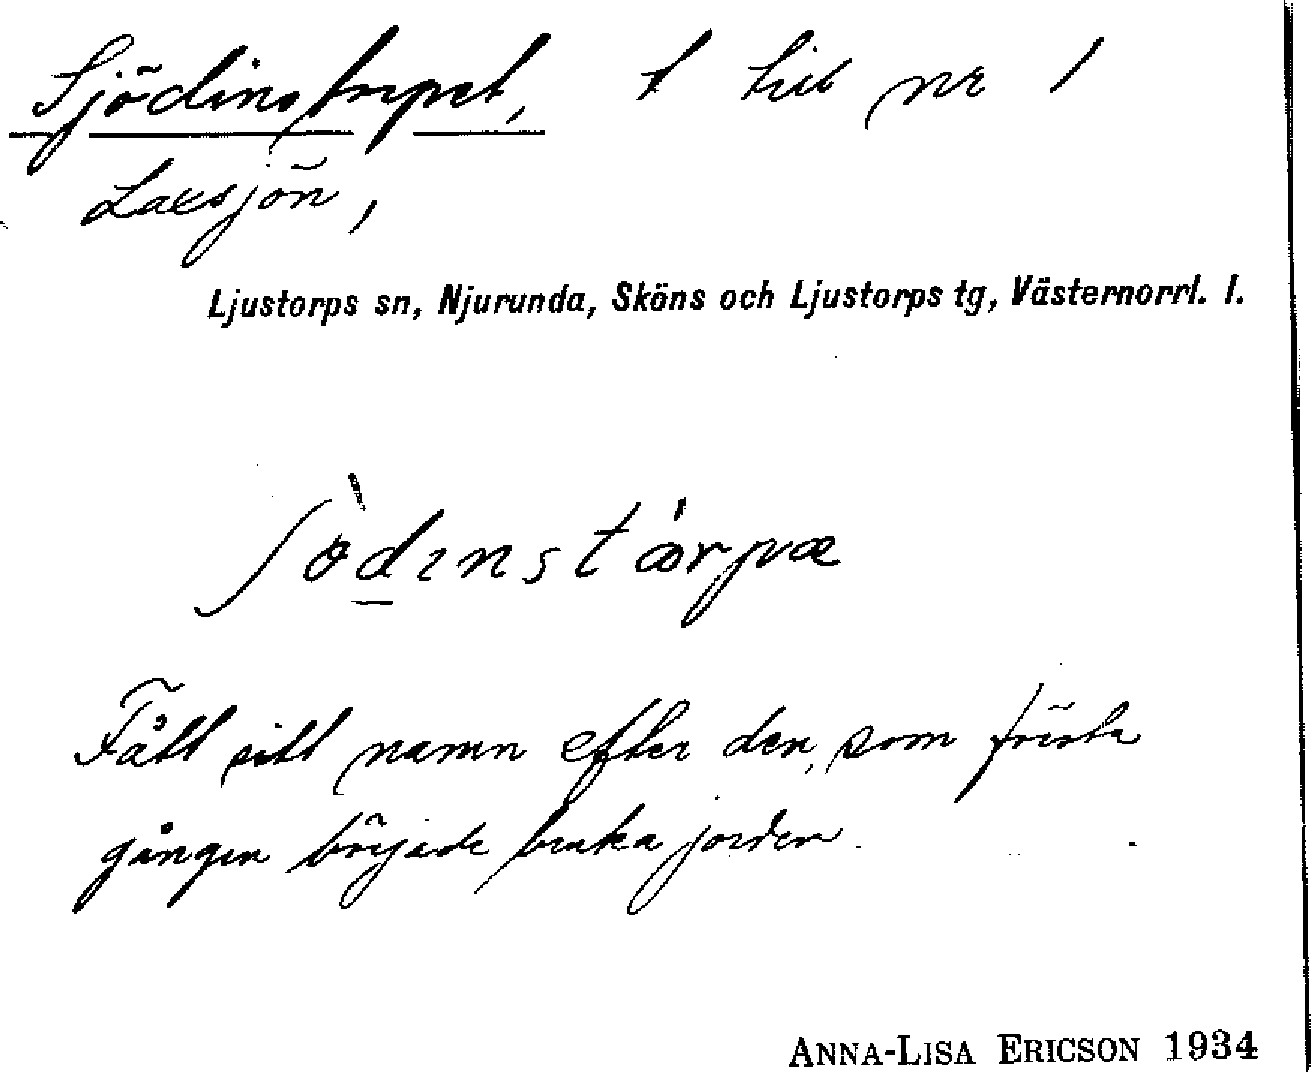 Sjödinstorpet, t till nr 1
Laxsjön,
Ljustorps sn, Njurunda, Sköns och Ljustorps tg, Västernorrl. l.
ʃö̀dɪnstǻrpæ
Fått sitt namn efter den, som första
gången började bruka jorden.
ANNA-LISA ERICSON 1934